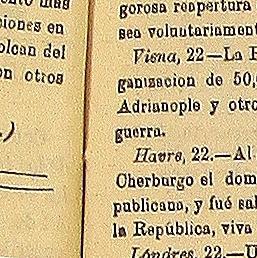 más
ciones en
olcan del
on otros
.)
gorosa reapertura
sea voluntariament
Viena, 22—La
ganizacion de 50,
Adrianople y otro
guerra.
Havre, 22.—Al
Cherburgo el dom
publicano, y fué sal
la República, viva
Lóndres, 22.—U